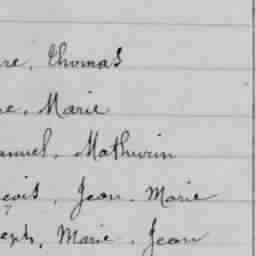 re, Thomas
ne, Marie
anuel, Mathurin
çois, Jean. Marie
seph, Marie, Jean